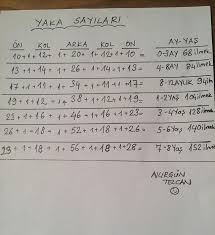 YAKA SAYILARI
ÖN KOL ARKA KOL ÖN AY-YAŞ
10+1+12+1+20+1+12+1+10= 0-3AY 68 ilmek
13+1+14+1+26+1+14+1+13= 4-8AY 84 ilmek
17+1+11+1+34+1+11+1+17= 8-12AYLIK 94 ilmek
19+1+12+1+38+1+12+1+19 1-2YAŞ 104 ilmek
23+1+16+1+46+1+16+1+23 3-4YAŞ 128 ilmek
26+1+18+1+52+1+18+1+26 5-6YAŞ 140 ilmek
+1+18+1+56+1+18+1+28= 7-8YAŞ 152 ilmek
NURGÜN
TEZCAN